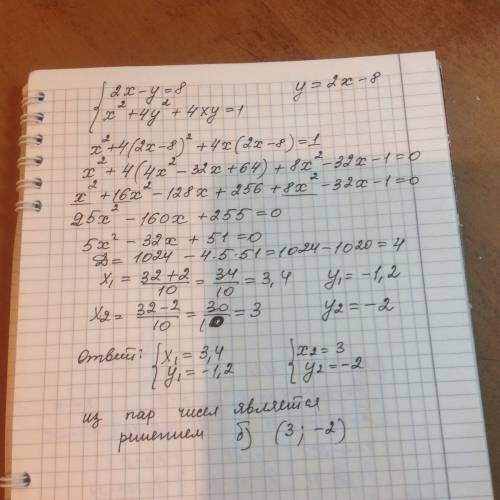 { 2x-y=8    y=2x-8
x²+4y²+4xy=1
x²+4(2x-8)²+4x(2x-8)=1
x²+4(4x²-32x+64)+8x²-32x-1=0
x²+16x²-128x+256+8x²-32x-1=0
25x²-160x+255=0
5x²-32x+51=0
D=1024-4·5·51=1024-1020=4
x₁=(32+2)/10=34/10=3,4    y₁=-1,2
x₂=(32-2)/10=30/10=3    y₂=-2
Ответ: { x₁=3,4    { x₂=3
y₁=-1,2    y₂=-2
из пар чисел является
решением б) (3; -2)